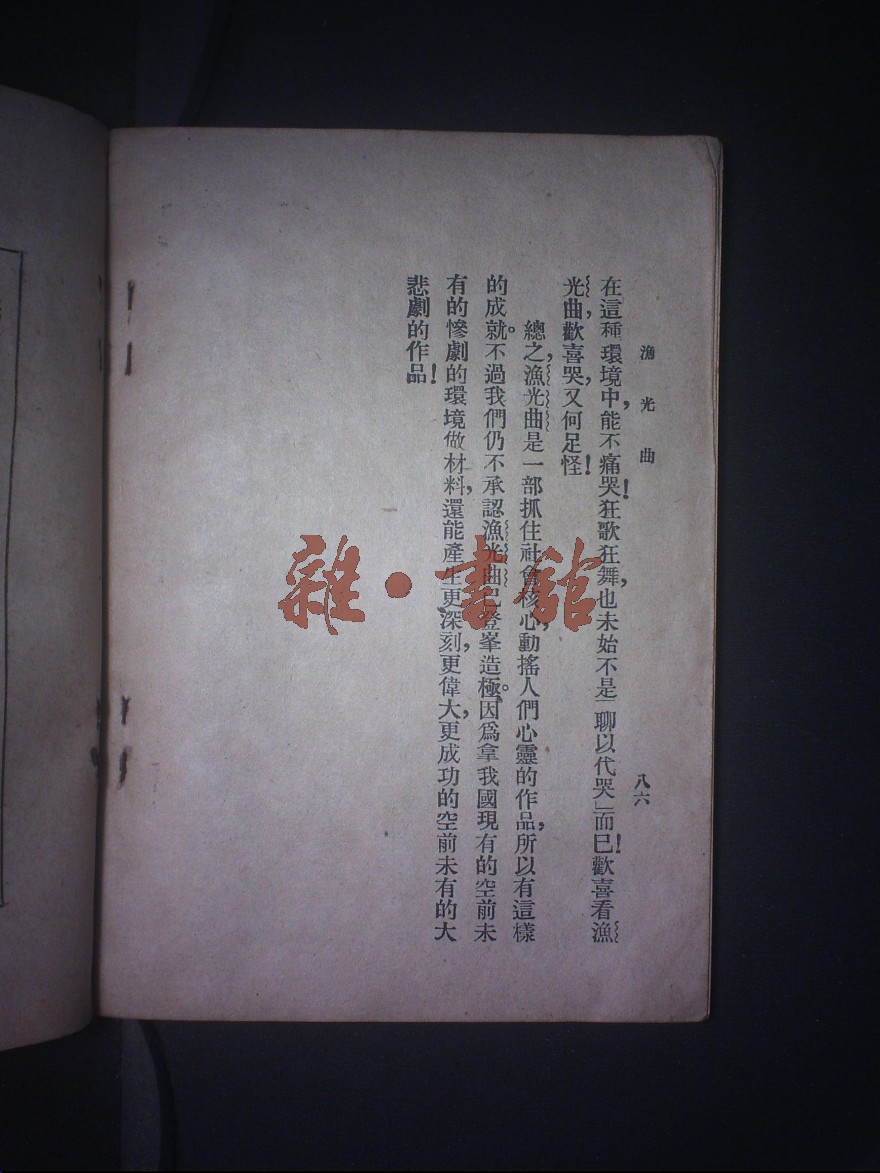 漁光曲
八六
在這種環境中，能不痛哭！狂歌狂舞，也未始不是「聊以代哭」而已！歡喜看漁
光曲，歡喜哭，又何足怪！
總之，漁光曲是一部抓住社會核心，動搖人們心靈的作品，所以有這樣
的成就。不過我們仍不承認漁光曲已登峯造極。因爲拿我國現有的空前未
有的慘劇的環境做材料，還能產生更深刻，更偉大，更成功的空前未有的大
悲劇的作品！
雜·書館